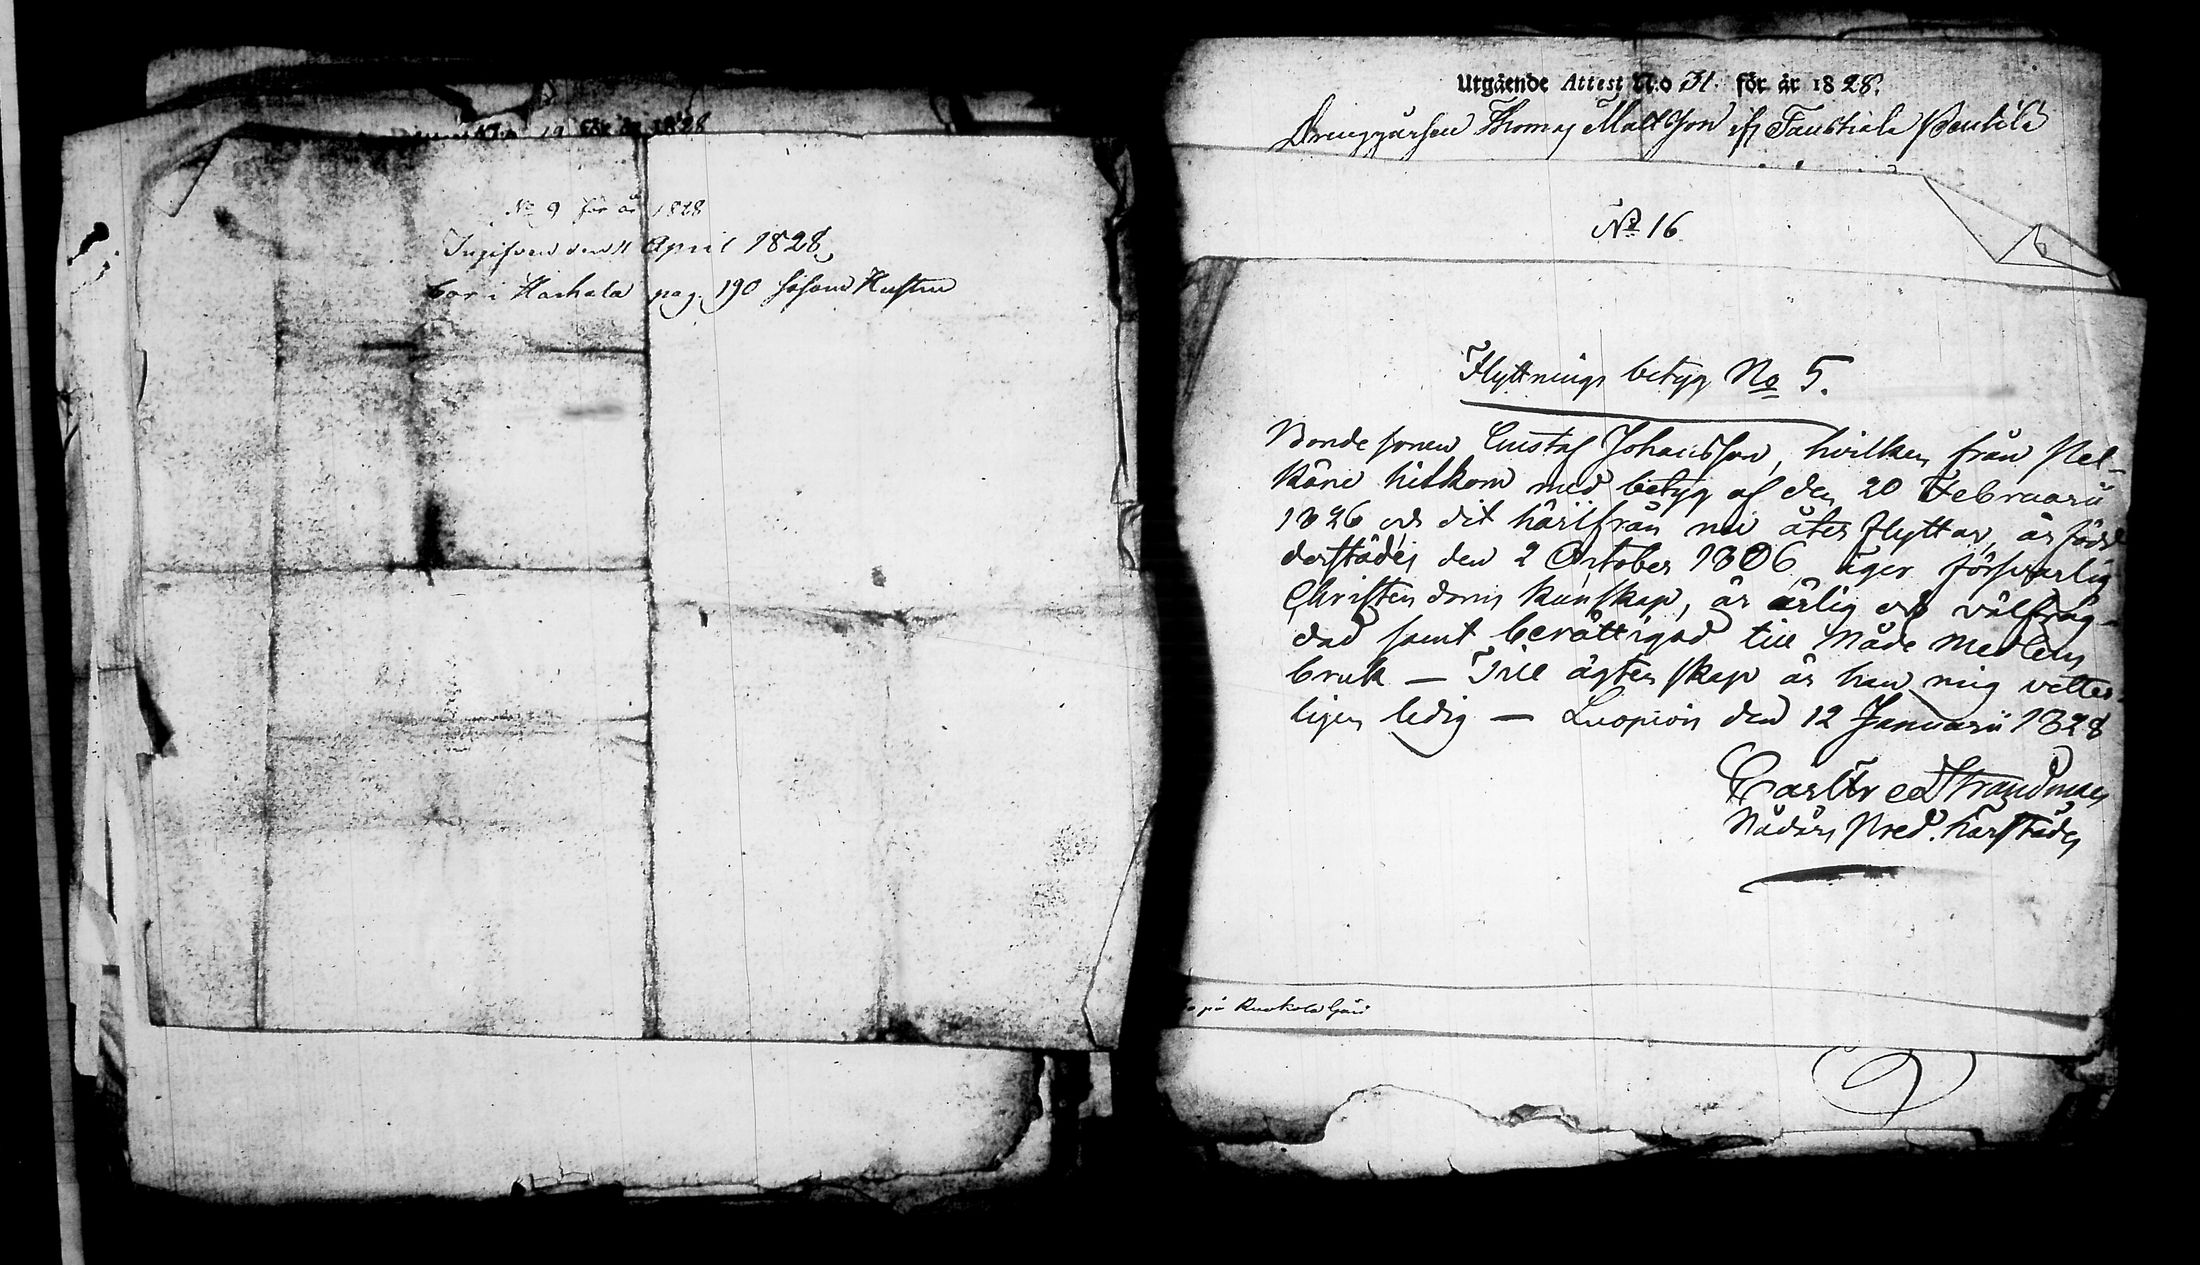 Attest N:o 19 för år 1828
No 9 för år 1828
Ingifven den 11 April 1828
bor i Haihala pag. 190
Utgående Attest N:o 31. för år 1828.
Drenggårssen Thomas Mattsson ifr Taustiala Penttilä
No 16
Flyttnings betyg No 5.
Bonde sonen Gustaf Johansson, hvilken från Pel-
käne hitkom med betyg af den 20 Februarii
1826 och dit härifrån nu åter flyttar, är född
derstädes den 2 October 1806, äger försvarlig
Christendoms kunskap, är ärlig och välfräg-
dad samt berättigad till Nåde medlens
bruk — Till ägtenskap är han mig vetter-
ligen ledig — Luopiois den 12 Januarii 1828
Carl Fred Strandman
Nådårs Pred. härstädes
på Ruokola Gård